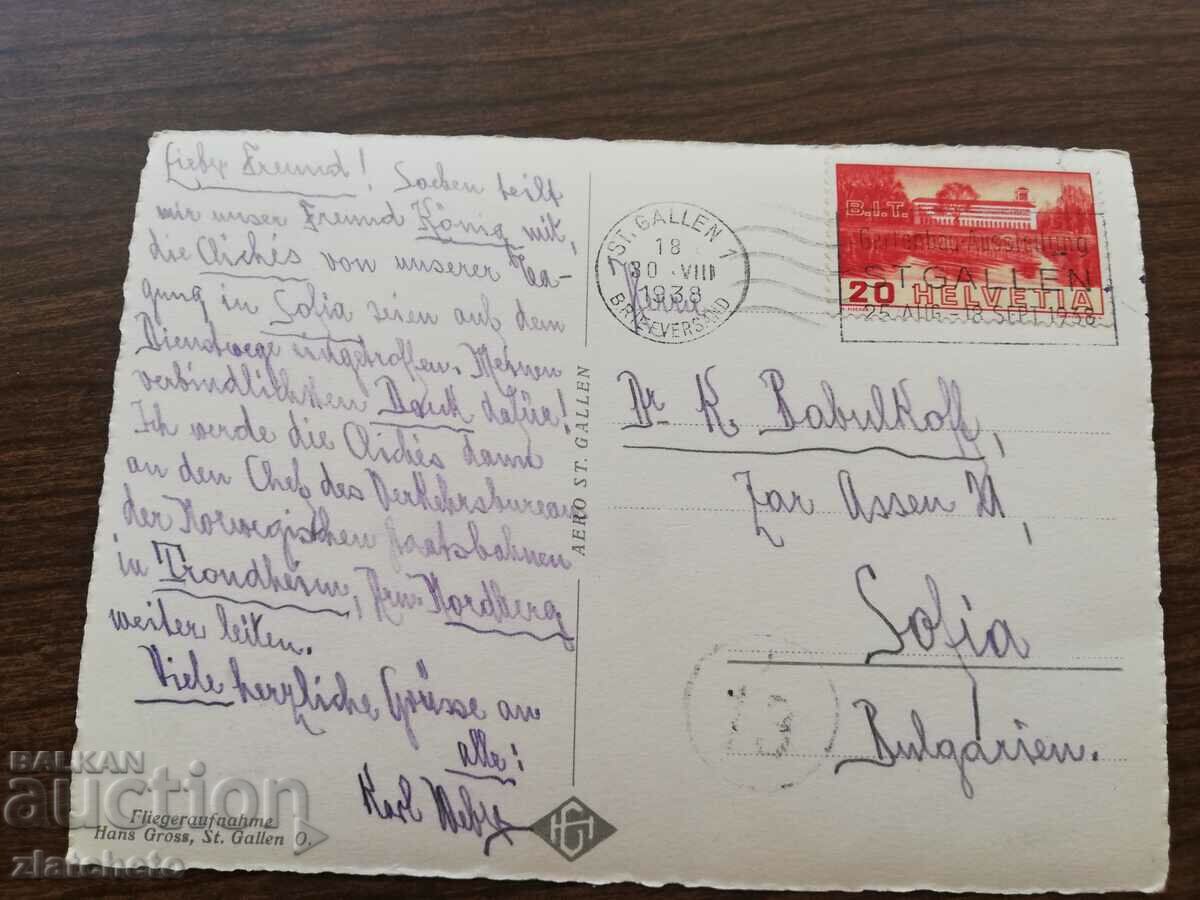 Lieber Freund! Soeben teilt
mir unser Freund König mit,
die Clichés von unserer Ta-
gung in Sofia seien auf dem
Dienstwege eingetroffen. Meinen
verbindlichsten Dank dafür!
Ich werde die Clichés dann
an den Chef des Verkehrsbureau
der Norwegischen Staatsbahnen
in Trondheim, Hrn. Nordberg
weiter leiten.
Viele herzliche Grüsse an
alle!
Karl Weber
Fliegeraufnahme
Hans Gross, St. Gallen O.
AERO ST. GALLEN
HG
ST. GALLEN 1
18
30 VIII
1938
BRIEFVERSAND
B.I.T.
20 HELVETIA
Gartenbau-Ausstellung
ST. GALLEN
25. AUG. - 18. SEPT. 1938
Herrn
Dr. K. Babulkoff,
Zar Assen
Sofia
Bulgarien.
BALKAN
auction
zlatcheto